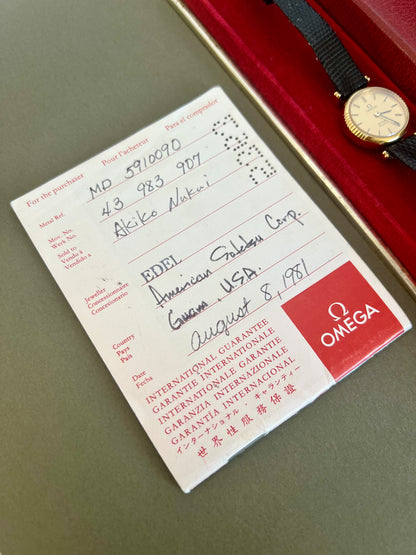 For the purchaser Pour l'acheteur Para el comprador
Metal Ref. MD 5910090
Mov. No.
Werk No. 43 983 907
Sold to
Vendu à
Vendido a Akiko Nukui
EDEL
Jeweller
Concessionnaire
Concesionario American Corp.
Guam, USA.
Country
Pays
País
Date
Fecha August 8, 1981
Ω
OMEGA
INTERNATIONAL GUARANTEE
GARANTIE INTERNATIONALE
INTERNATIONALE GARANTIE
GARANZIA INTERNAZIONALE
GARANTÍA INTERNACIONAL
インターナショナル・ギャランティー
世界性服務保證
OMEGA